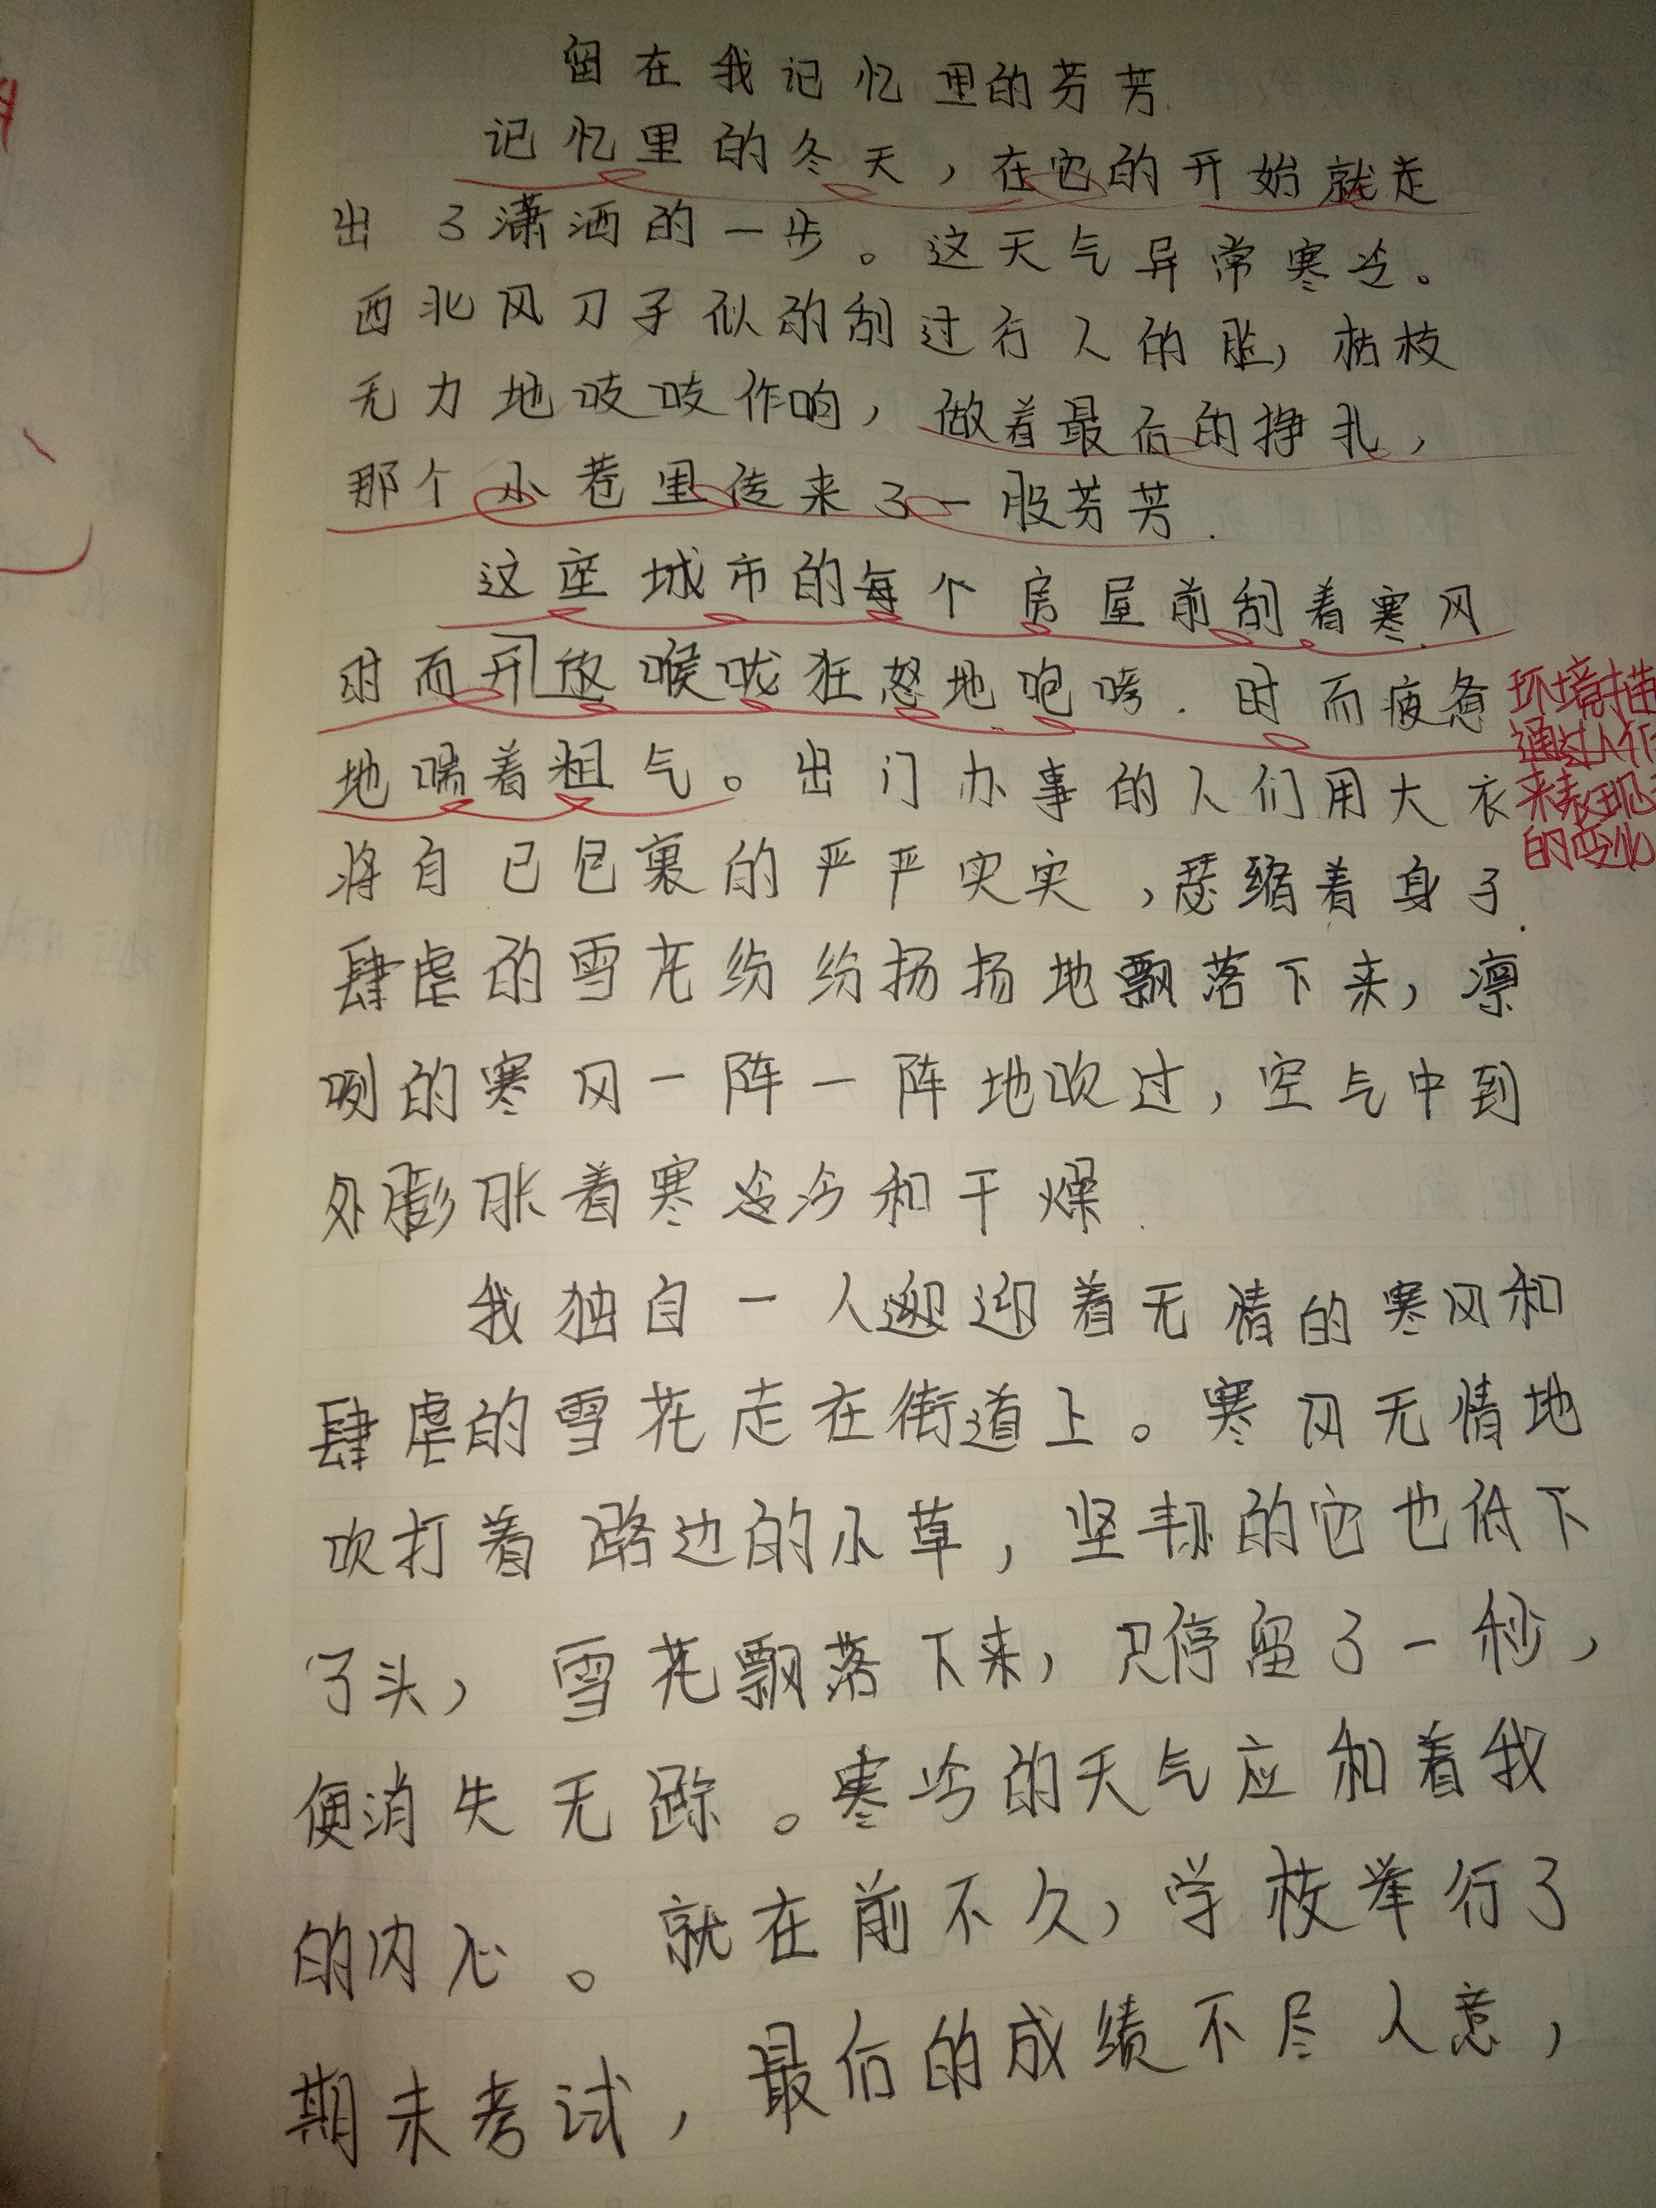 留在我记忆里的芬芳
记忆里的冬天，在它的开始就走
出了潇洒的一步。这天气异常寒冷。
西北风刀子似的刮过行人的脸，枯枝
无力地吱吱作响，做着最后的挣扎，
那个小巷里传来了一股芬芳.
这座城市的每个房屋前刮着寒风
时而开放喉咙狂怒地咆哮.时而疲惫
环境描
通过人们
地喘着粗气。出门办事的人们用大衣
来表现
的变化
将自己包裹的严严实实，瑟缩着身子.
肆虐的雪花纷纷扬扬地飘落下来，凛
冽的寒风一阵一阵地吹过，空气中到
外膨胀着寒冷和干燥.
我独自一人迎着无情的寒风和
肆虐的雪花走在街道上。寒风无情地
吹打着路边的小草，坚韧的它也低下
了头，雪花飘落下来，只停留了一秒，
便消失无踪。寒冷的天气应和着我
的内心。就在前不久，学校举行了
期末考试，最后的成绩不尽人意，